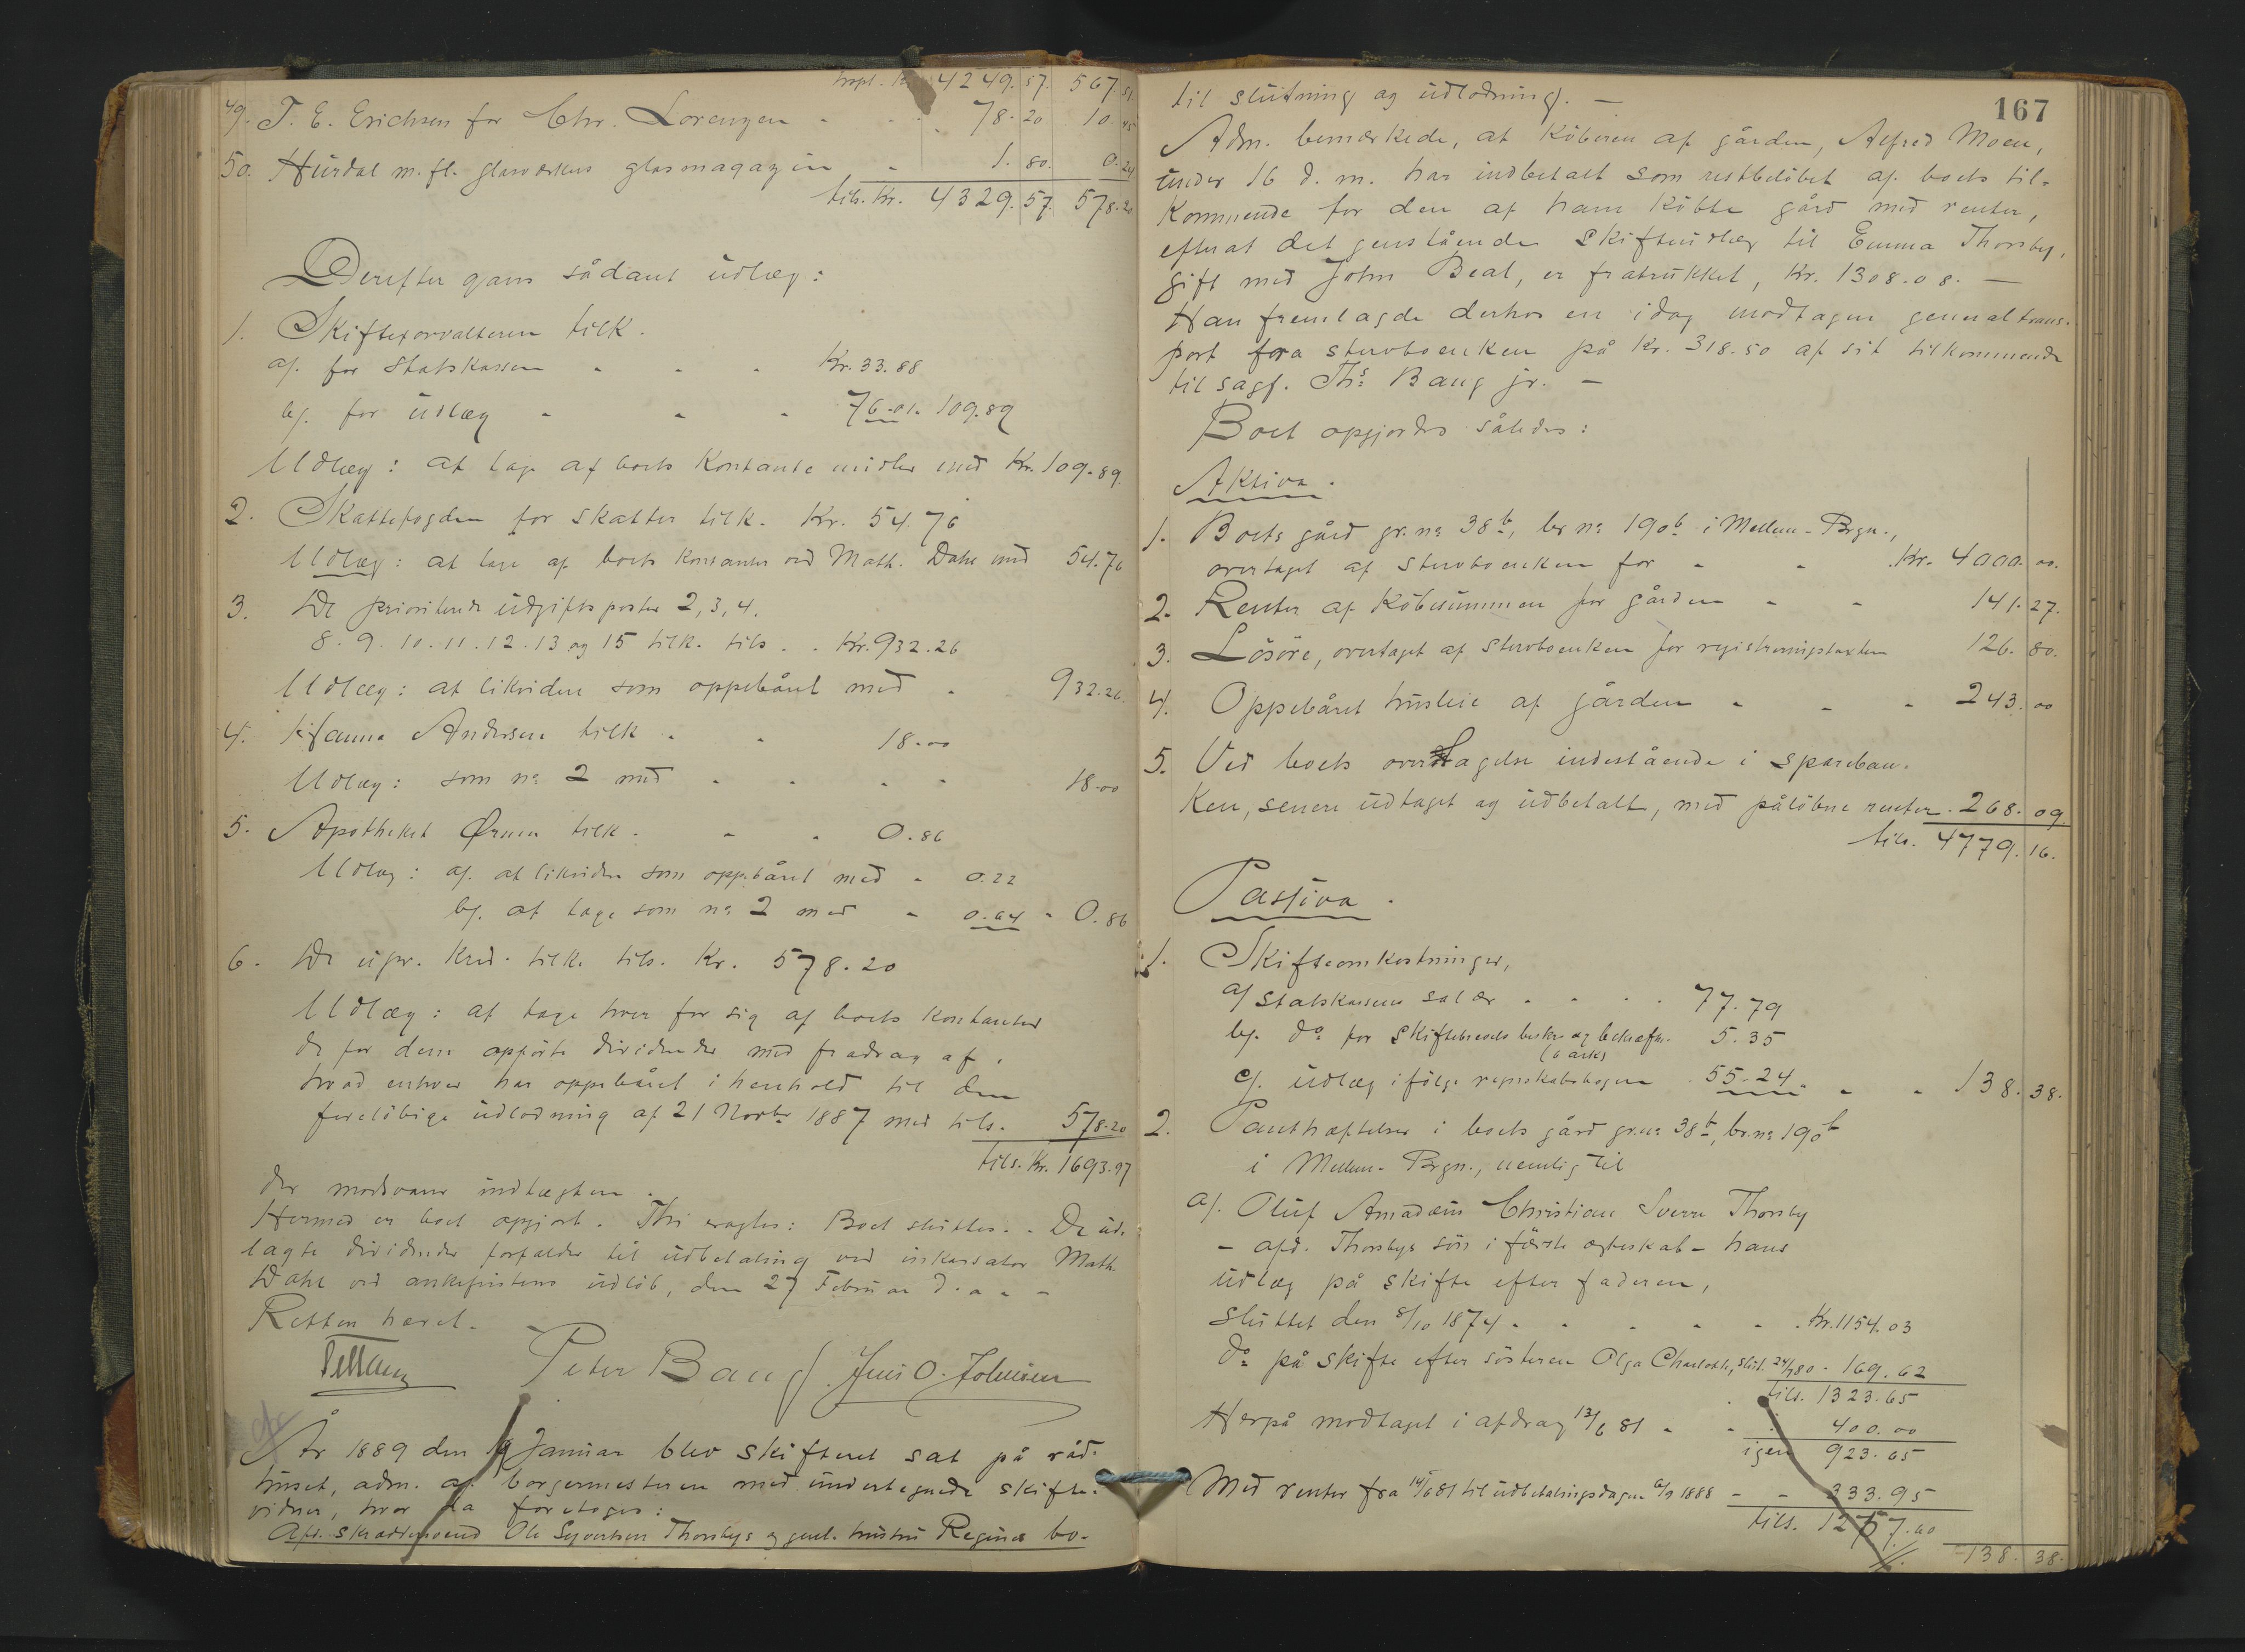 4249.57. 567.51.
49. T. E. Erichsen for Chr. Lorenzen - 78.20 10.45
50. Hurdal m. fl. glasværkers glasmagazin - 1.80. 0.24
tils. Kr. 4329.57. 578.20
Derefter gaves sådant udlæg:
1. Skifteforvalteren tilk.
a/. for Statskassen - - - Kr. 33.88
b/. for udlæg - - - 76.01. 109.89
Udlæg: at tage af boets kontante midler med Kr. 109.89.
2. Skattefogden for skatter tilk. Kr. 54.76
Udlæg: at tage af boets kontanter ved Math. Dahl med 54.76
3. De prioriterede udgiftsposter 2, 3, 4.
8. 9. 10. 11. 12. 13 og 15 tilk. tils. . . Kr. 932.26
Udlæg: at likvidere som oppebåret med - 932.26.
4. Hanna Andersen tilk. - - 18.00
Udlæg: som no 2 med - - - - 18.00
5. Apotheket Ørnen tilk. - - 0.86
Udlæg: a/. at likvidere som oppebåret med - 0.22
b/. at tage som no 2 med - 0.64 - 0.86
6. De upr. kred. tilk. tils. Kr. 578.20
Udlæg: at tage hver for sig af boets kontanter
de for dem opførte dividender med fradrag af,
hvad enhver har oppebåret i henhold til den
foreløbige udlodning af 21 Novbr 1887 med tils. 578.20
tils. Kr. 1693.97
der modsvarer indtægten.
Hermed er boet opgjort. Thi eragtes: Boet sluttes. - De ud-
lagte dividender forfalder til udbetaling ved inkassator Math.
Dahl ved ankefristens udløb, den 27 Februar d. a. -
Retten hævet.
Peter Bang. Jens O. Johnsen
År 1889 den 19 Januar blev skifteret sat på råd-
huset, adm. af borgermesteren med undertegnede skifte-
vidner, hvor da foretoges:
Afd. skræddersvend Ole Syvertsen Thorsbys og genl. hustru Regines bo.
167
til slutning og udlodning. -
Adm. bemærkede, at køberen af gården, Alfred Moen,
under 16 d. m. har indbetalt som restbeløbet af boets til-
kommende for den af ham købte gård med renter,
efterat det genstående skifteudlæg til Emma Thorsby,
gift med John Beal, er fratrukket, Kr. 1308.08. -
Han fremlagde derhos en idag modtagen generaltrans-
port fra stervboenken på Kr. 318.50 af sit tilkommende
til sagf. Ths Bang jr. -
Boet opgjordes således:
Aktiva.
1. Boets gård gr. no 38b, br no 190b i Mellem-Brgn.,
overtaget af stervboenken for - - Kr. 4000.00.
2. Renter af købesummen for gården - - 141.27.
3. Løsøre, overtaget af stervboenken for registreringstaxten 126.80.
4. Oppebåret husleie af gården - - - 243.00
5. Ved boets overtagelse indestående i spareban-
ken, senere udtaget og udbetalt, med påløbne renter. 268.09.
tils. 4779.16.
Passiva.
1. Skifteomkostninger,
a/ Statskassens salær . - - . 77.79
b/. do for skiftebrevets beskr. og bekræft. 5.35
(6 ark)
c/. udlæg ifølge regnskabsbogen 55.24. - - 138.38.
2. Panthæftelser i boets gård gr. no 38b, br. no 190b
i Mellem-Brgn., nemlig til
a/. Oluf Amadæus Christian Sverre Thorsby
- afd. Thorsbys søn i første ægteskab - hans
udlæg på skifte efter faderen,
sluttet den 8/10 1874 - - - - - Kr. 1154.03
do på skifte efter søsteren Olga Charlotte, slut. 24/7 80 - 169.62
tils. 1323.65
Herpå modtaget i afdrag 13/6 81 - - - 400.00
igen 923.65
Med renter fra 14/6 81 til udbetalingsdagen 6/7 1888 - - 333.95
tils. 1257.60
138.38.